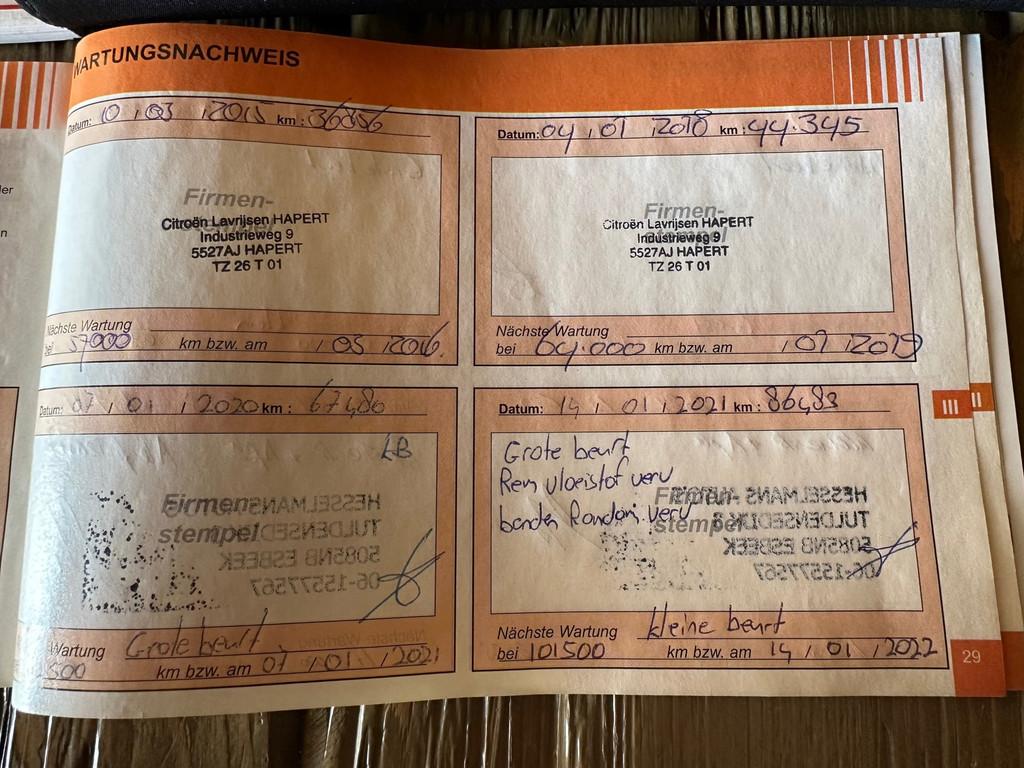 WARTUNGSNACHWEIS
Datum: 10 / 03 / 2015 km:
Firmen-
Citroën Lavrijsen HAPERT
Industrieweg 9
5527AJ HAPERT
TZ 26 T 01
Nächste Wartung
57000 km bzw. am / 03 / 2016.
Datum: 04 / 01 / 2018 km: 44.345
Firmen-
Citroën Lavrijsen HAPERT
Industrieweg 9
5527AJ HAPERT
TZ 26 T 01
Nächste Wartung
bei 64.000 km bzw. am / 01 / 2019
Datum: 07 / 01 / 2020 km: 67480
Firmen-
stempel
HESSELMANS
TULDENSEDIJK
5085NB ESBEEK
06-15577567
Wartung Grote beurt
500 km bzw. am 07 / 01 / 2021
Datum: 14 / 01 / 2021 km: 86483
Grote beurt
Rem vloeistof verv
banden Rondom verv
Firmen-
stempel
HESSELMANS
TULDENSEDIJK
5085NB ESBEEK
06-15577567
Nächste Wartung kleine beurt
bei 101500 km bzw. am 14 / 01 / 2022
III
II
29